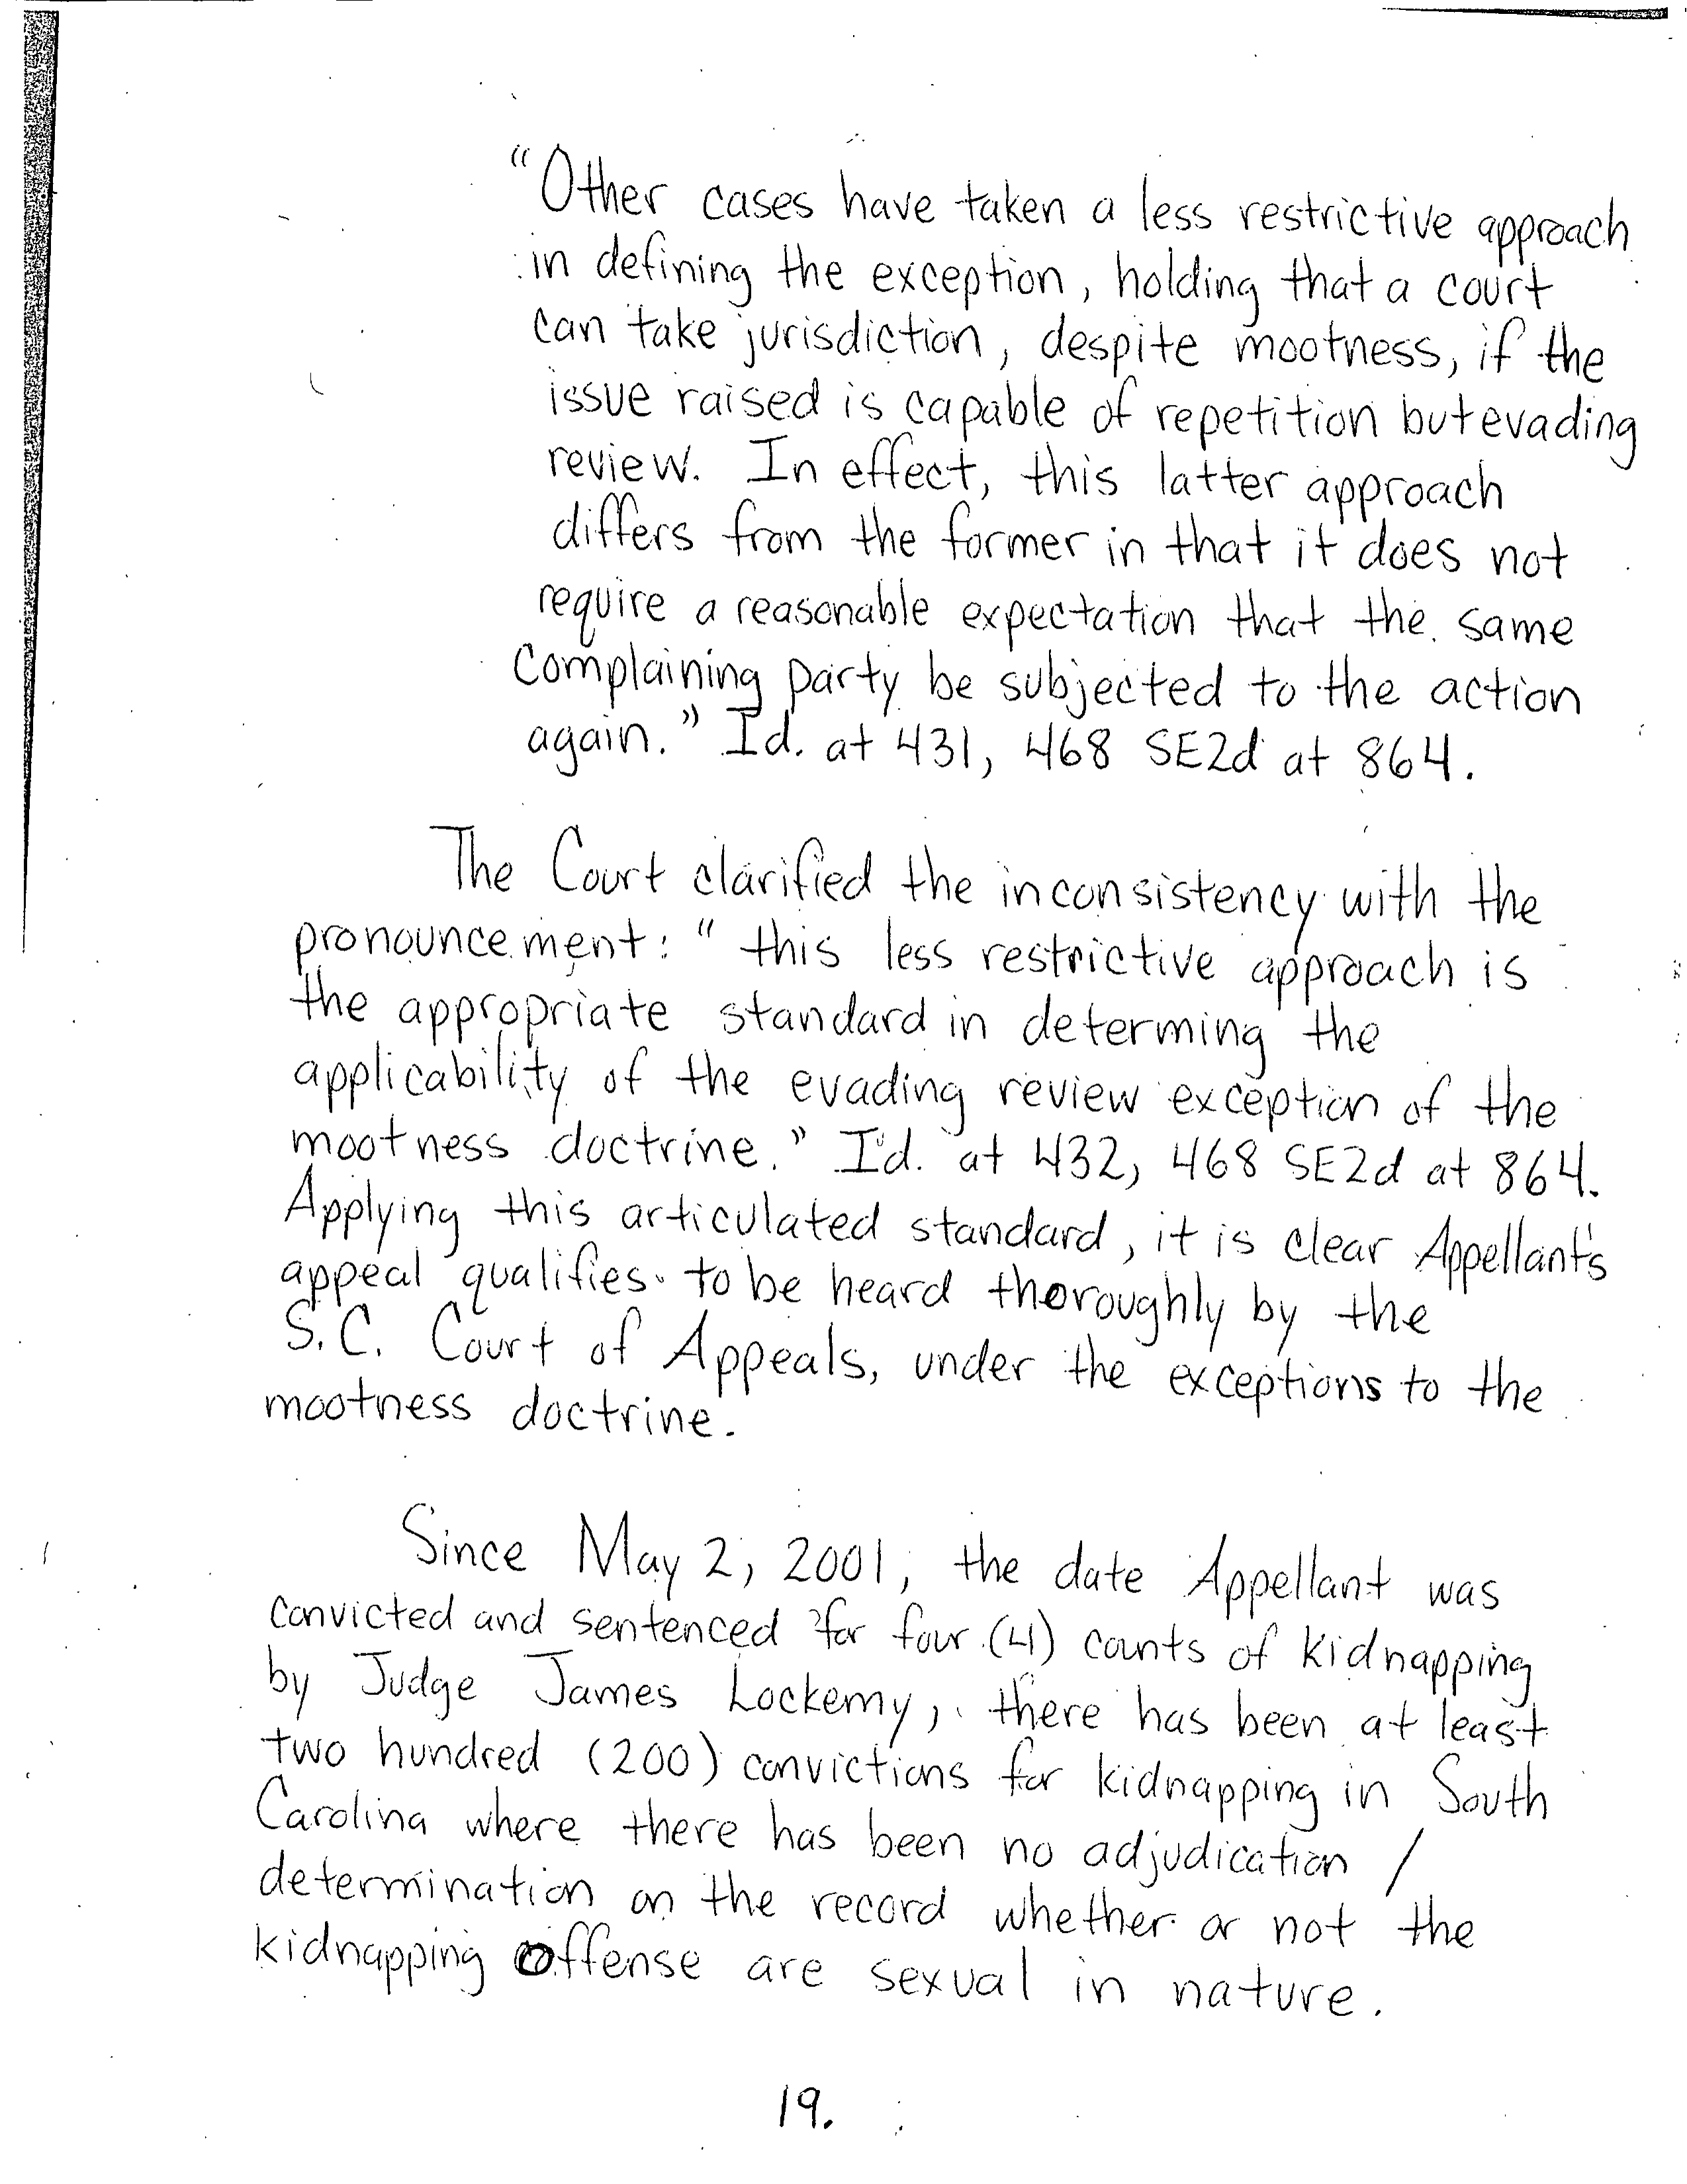 "Other cases have taken a less restrictive approach
in defining the exception, holding that a court
can take jurisdiction, despite mootness, if the
issue raised is capable of repetition but evading
review. In effect, this latter approach
differs from the former in that it does not
require a reasonable expectation that the same
complaining party be subjected to the action
again." Id. at 431, 468 SE2d at 864.
The Court clarified the inconsistency with the
pronouncement: "this less restrictive approach is
the appropriate standard in determing the
applicability of the evading review exception of the
mootness doctrine." Id. at 432, 468 SE2d at 864.
Applying this articulated standard, it is clear Appellant's
appeal qualifies to be heard thoroughly by the
S.C. Court of Appeals, under the exceptions to the
mootness doctrine.
Since May 2, 2001, the date Appellant was
convicted and sentenced for four (4) counts of kidnapping
by Judge James Lockemy, there has been at least
two hundred (200) convictions for kidnapping in South
Carolina where there has been no adjudication /
determination on the record whether or not the
kidnapping offense are sexual in nature.
19.